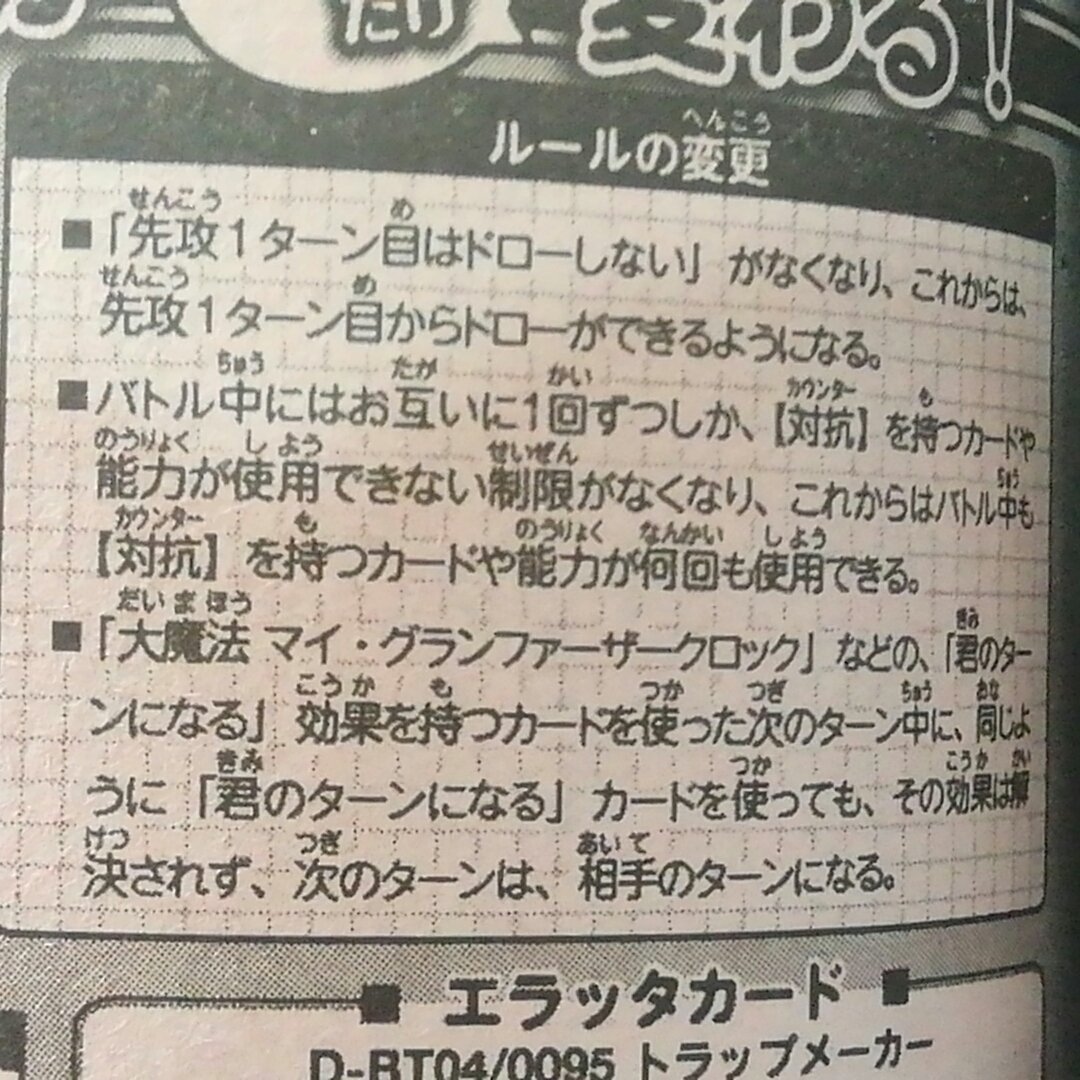 変わる!
ルールの変更
■「先攻1ターン目はドローしない」がなくなり、これからは、
先攻1ターン目からドローができるようになる。
■バトル中にはお互いに1回ずつしか、【対抗】を持つカードや
能力が使用できない制限がなくなり、これからはバトル中も
【対抗】を持つカードや能力が何回も使用できる。
■「大魔法 マイ・グランファーザークロック」などの、「君のター
ンになる」効果を持つカードを使った次のターン中に、同じよ
うに「君のターンになる」カードを使っても、その効果は解
決されず、次のターンは、相手のターンになる。
■ エラッタカード ■
D-BT04/0095 トラップメーカー